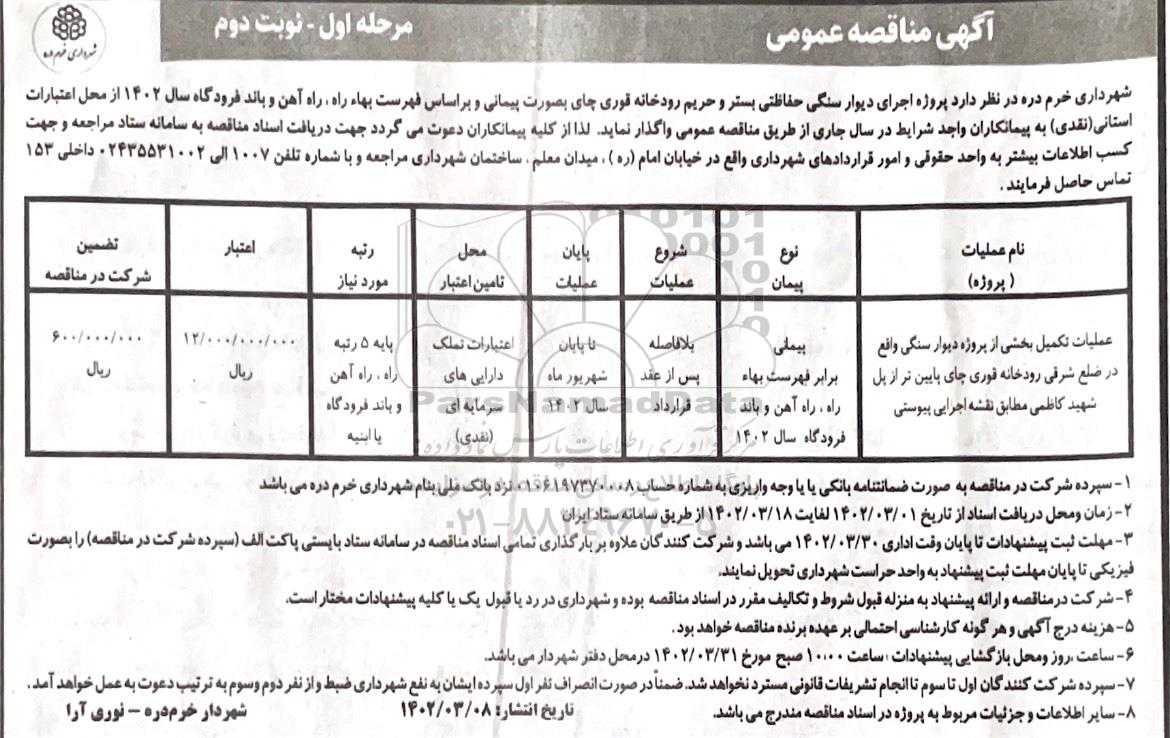 آگهی مناقصه عمومی
مرحله اول - نوبت دوم
شهرداری خرم دره
شهرداری خرم دره در نظر دارد پروژه اجرای دیوار سنگی حفاظتی بستر و حریم رودخانه قوری چای بصورت پیمانی و براساس فهرست بهاء راه ، راه آهن و باند فرودگاه سال ۱۴۰۲ از محل اعتبارات
استانی(نقدی) به پیمانکاران واجد شرایط در سال جاری از طریق مناقصه عمومی واگذار نماید. لذا از کلیه پیمانکاران دعوت می گردد جهت دریافت اسناد مناقصه به سامانه ستاد مراجعه و جهت
کسب اطلاعات بیشتر به واحد حقوقی و امور قراردادهای شهرداری واقع در خیابان امام (ره ) ، میدان معلم ، ساختمان شهرداری مراجعه و با شماره تلفن ۱۰۰۷ الی ۰۲۴۳۵۵۳۱۰۰۲ داخلی ۱۵۳
تماس حاصل فرمایند .
نام عملیات
( پروژه)
نوع
پیمان
شروع
عملیات
پایان
عملیات
محل
تامین اعتبار
رتبه
مورد نیاز
اعتبار
تضمین
شرکت در مناقصه
عملیات تکمیل بخشی از پروژه دیوار سنگی واقع
در ضلع شرقی رودخانه قوری چای پایین تر از پل
شهید کاظمی مطابق نقشه اجرایی پیوستی
پیمانی
برابر فهرست بهاء
راه ، راه آهن و باند
فرودگاه سال ۱۴۰۲
بلافاصله
پس از عقد
قرارداد
تا پایان
شهریور ماه
سال ۱۴۰۲
اعتبارات تملک
دارایی های
سرمایه ای
(نقدی)
پایه ۵ رتبه
راه ، راه آهن
و باند فرودگاه
یا ابنیه
۱۲/۰۰۰/۰۰۰/۰۰۰
ریال
۶۰۰/۰۰۰/۰۰۰
ریال
ParsNamadData
۰۲۱-۸۸۳۴۹۶۷۰-۵
۱- سپرده شرکت در مناقصه به صورت ضمانتنامه بانکی یا یا وجه واریزی به شماره حساب ۰۱۰۶۱۹۷۳۷۰۰۰۸ نزد بانک ملی بنام شهرداری خرم دره می باشد
۲- زمان ومحل دریافت اسناد از تاریخ ۱۴۰۲/۰۳/۰۱ لغایت ۱۴۰۲/۰۳/۱۸ از طریق سامانه ستاد ایران
۳- مهلت ثبت پیشنهادات تا پایان وقت اداری ۱۴۰۲/۰۳/۳۰ می باشد و شرکت کنندگان علاوه بر بارگذاری تمامی اسناد مناقصه در سامانه ستاد بایستی پاکت الف (سپرده شرکت در مناقصه) را بصورت
فیزیکی تا پایان مهلت ثبت پیشنهاد به واحد حراست شهرداری تحویل نمایند.
۴- شرکت درمناقصه و ارائه پیشنهاد به منزله قبول شروط و تکالیف مقرر در اسناد مناقصه بوده و شهرداری در رد یا قبول یک یا کلیه پیشنهادات مختار است.
۵- هزینه درج آگهی و هر گونه کارشناسی احتمالی بر عهده برنده مناقصه خواهد بود .
۶- ساعت ،روز ومحل بازگشایی پیشنهادات : ساعت ۱۰:۰۰ صبح مورخ ۱۴۰۲/۰۳/۳۱ درمحل دفتر شهردار می باشد.
۷- سپرده شرکت کنندگان اول تا سوم تا انجام تشریفات قانونی مسترد نخواهد شد. ضمناً در صورت انصراف نفر اول سپرده ایشان به نفع شهرداری ضبط و از نفر دوم وسوم به ترتیب دعوت به عمل خواهد آمد .
۸- سایر اطلاعات و جزئیات مربوط به پروژه در اسناد مناقصه مندرج می باشد.
تاریخ انتشار: ۱۴۰۲/۰۳/۰۸
شهردار خرم‌دره - نوری آرا